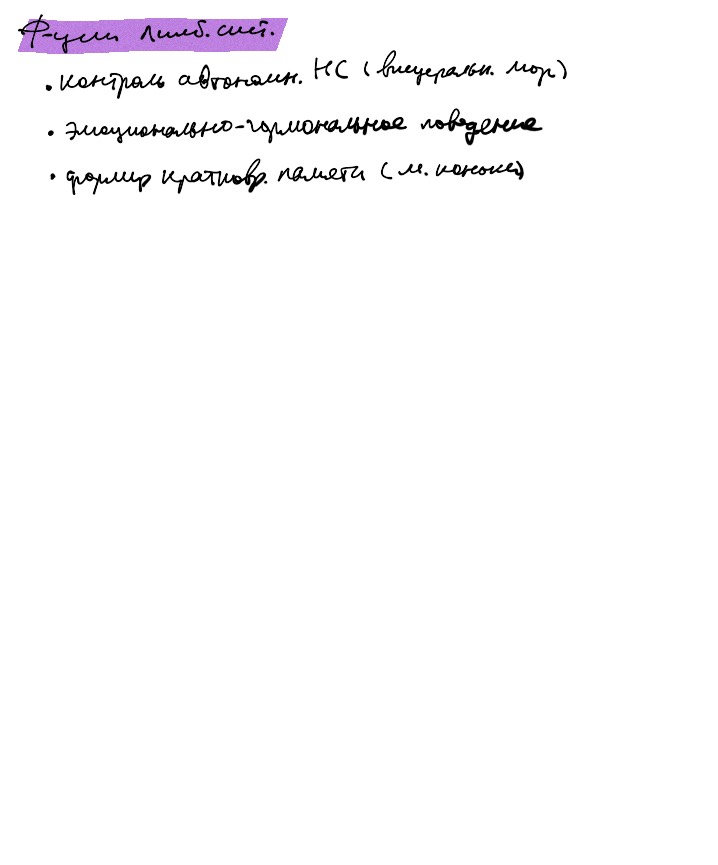 Ф-ции лимб. сист.
• контроль автономн. НС (висцеральн. мозг)
• эмоционально-гормональное поведение
• формир кратковр. памяти (м.